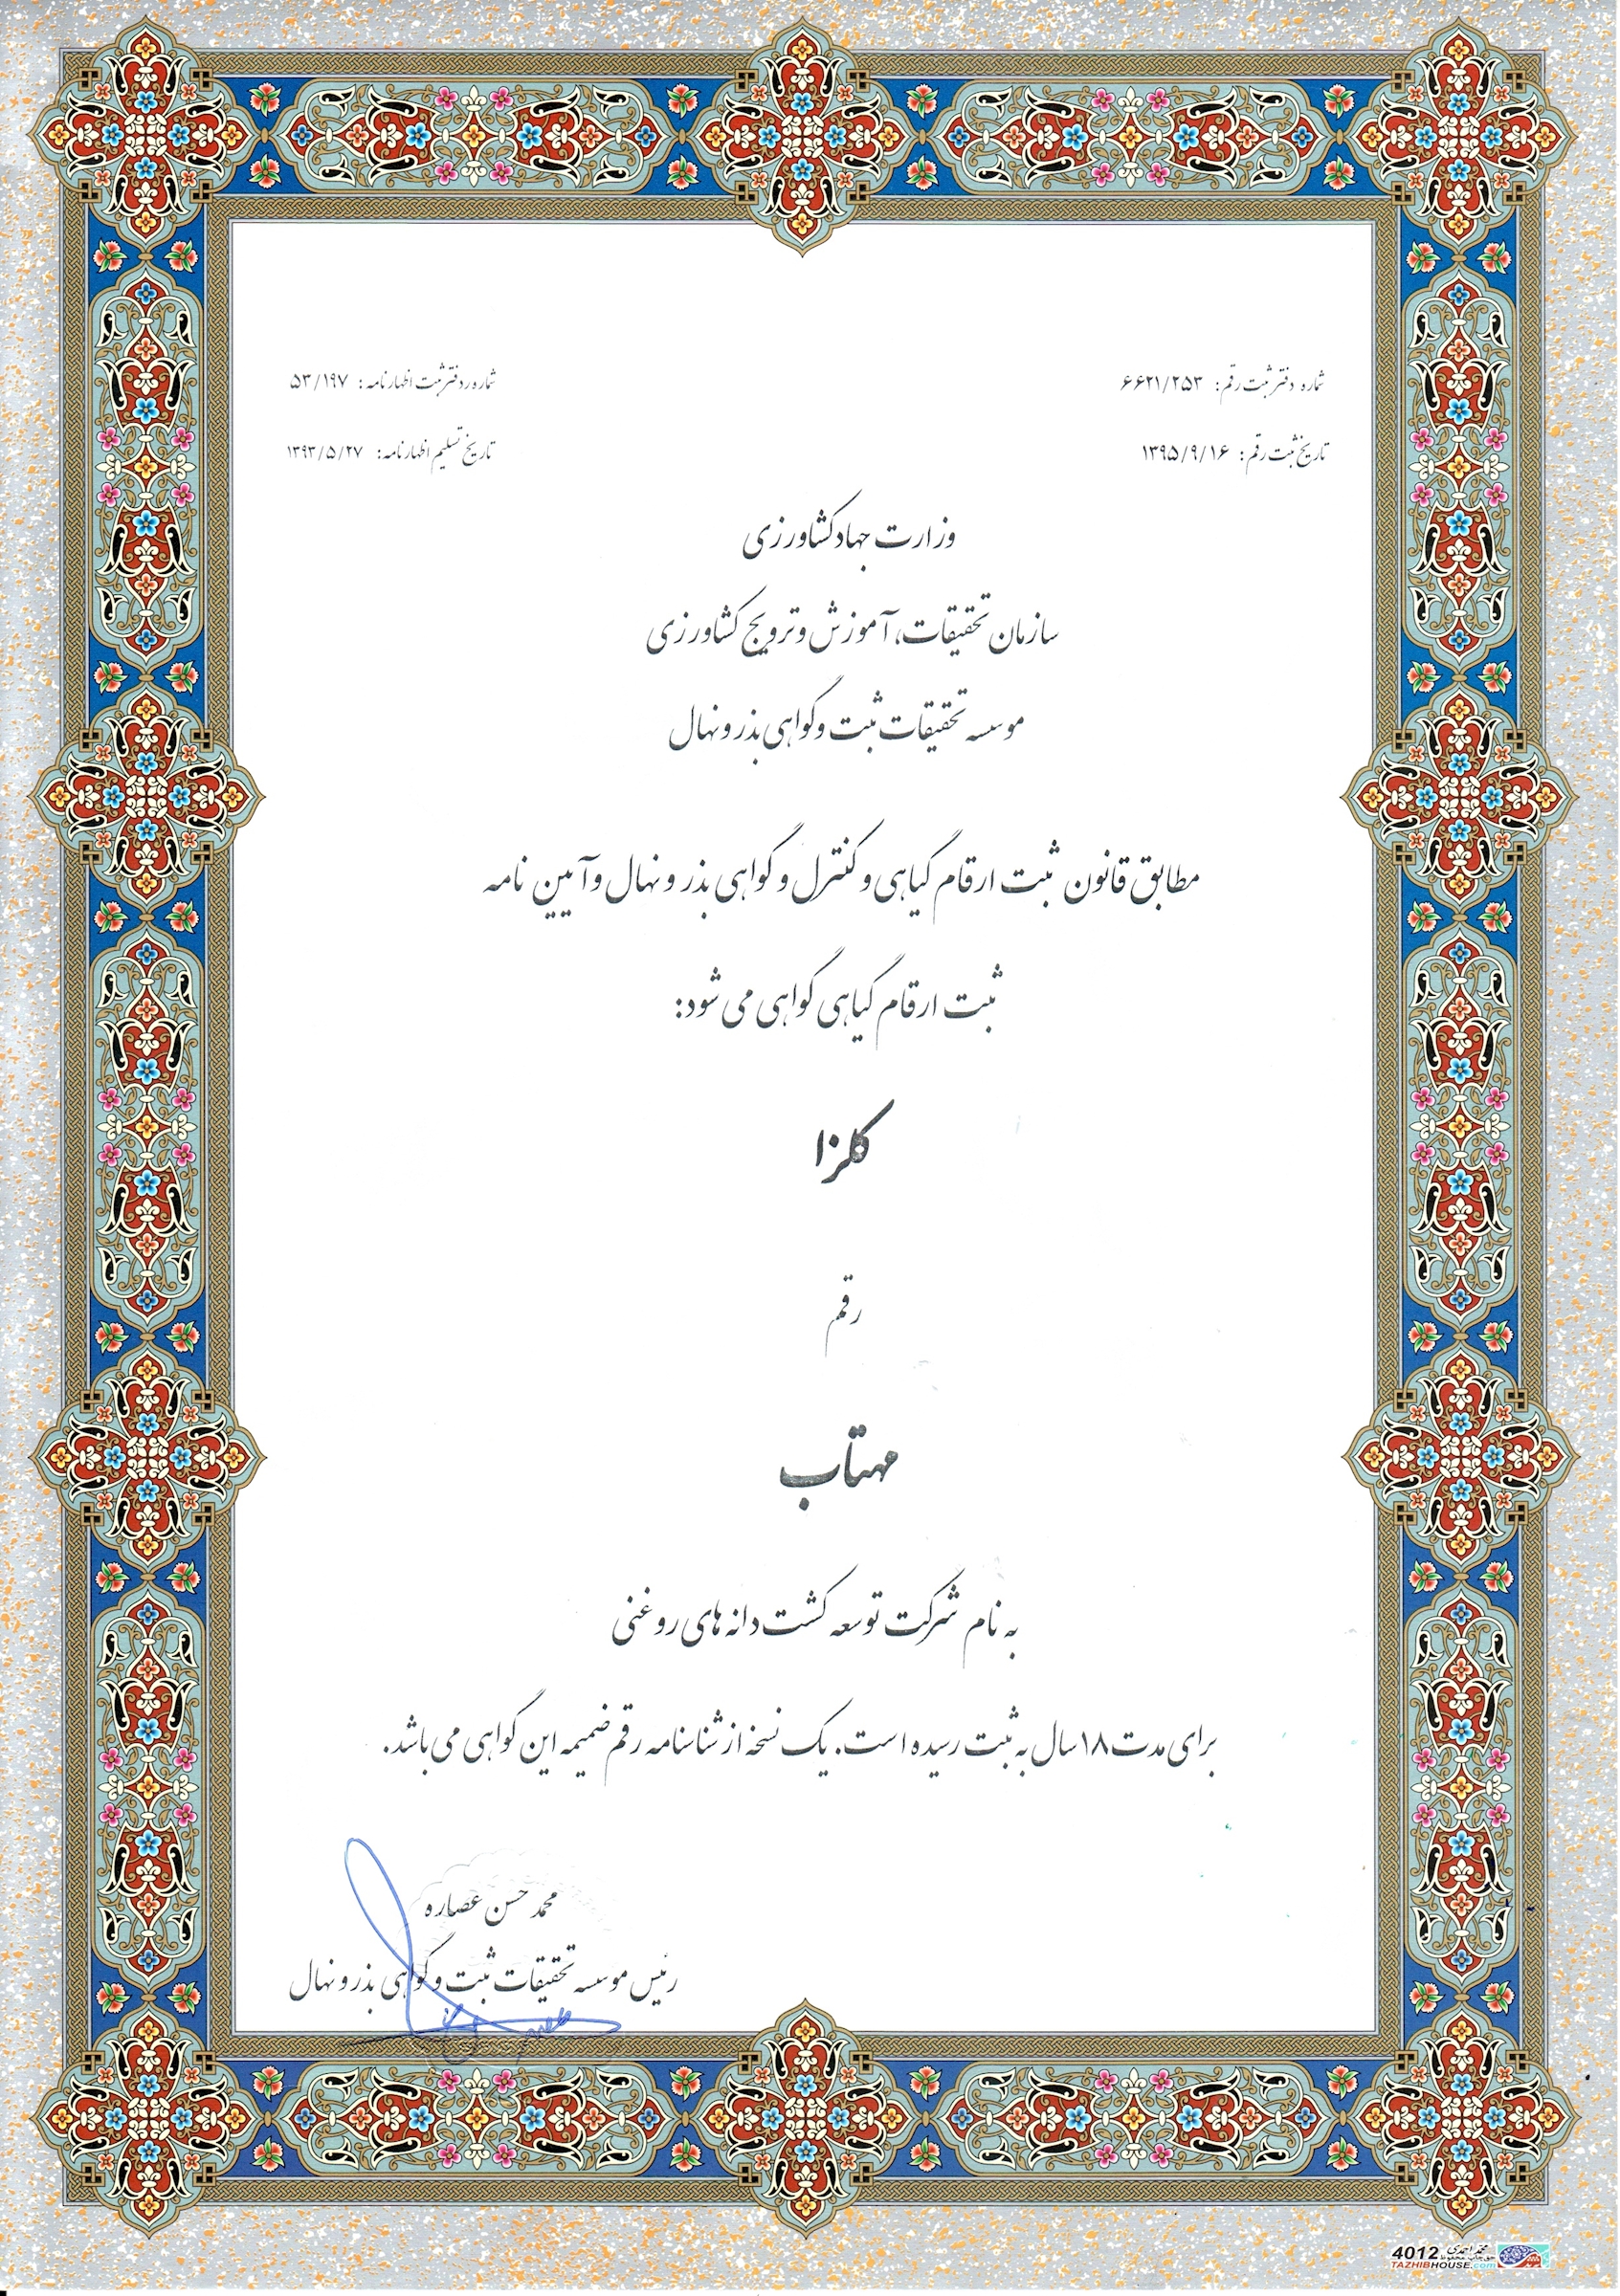 شماره دفتر ثبت رقم: ۶۶۲۱/۲۵۳
شماره دفتر ثبت اظهارنامه: ۵۳/۱۹۷
تاریخ ثبت رقم: ۱۳۹۵/۹/۱۶
تاریخ تسلیم اظهارنامه: ۱۳۹۳/۵/۲۷
وزارت جهاد کشاورزی
سازمان تحقیقات، آموزش و ترویج کشاورزی
موسسه تحقیقات ثبت و گواهی بذر و نهال
مطابق قانون ثبت ارقام گیاهی و کنترل و گواهی بذر و نهال و آیین نامه
ثبت ارقام گیاهی گواهی می شود:
کلزا
رقم
مهتاب
به نام شرکت توسعه کشت دانه های روغنی
برای مدت ۱۸ سال به ثبت رسیده است. یک نسخه از شناسنامه رقم ضمیمه این گواهی می باشد.
محمد حسن عصاره
رئیس موسسه تحقیقات ثبت و گواهی بذر و نهال
4012 محمد احمدی
حق چاپ محفوظ
TAZHIBHOUSE.com